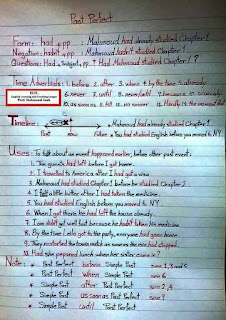 Past Perfect
Form: had + pp : Mahmoud had already studied Chapter 1
Negation: hadn't + pp : Mahmoud hadn't studied Chapter 1
Questions: Had + subject + pp ? Had Mahmoud studied Chapter 1 ?
Time Adverbials: 1. before 2. after 3. when 4. by the time 5. already
6. never 7. until 8. 9. because 10. soon
10. as soon as 11. till 12. 13. Hardly
Timeline: Mahmoud had already studied Chapter 1
Past now Future You had studied English before you moved to N.Y.
Uses: To talk about an event happened earlier, before other past event:
1. The guests had left before I got home.
2. I travelled to America after I had got a visa
3. Mahmoud had studied Chapter 1 before he studied Chapter 2
4. I felt a little better after I had taken the medicine.
5. You had studied English before you moved to N.Y.
6. When I got there he had left the house already.
7. I didn't get well fast because he hadn't taken his medicine
8. By the time Leila got to the party, everyone had gone home.
9. They restarted the tennis match as soon as the rain had stopped.
10. Had she prepared lunch when her sister came ?
Note: * Past Perfect before Simple Past see 1, 3 and 5
* Past Perfect when Simple Past see 6
* Simple Past after Past Perfect see 2, 4
* Simple Past as soon as Past Perfect see 9
* Simple Past until Past Perfect